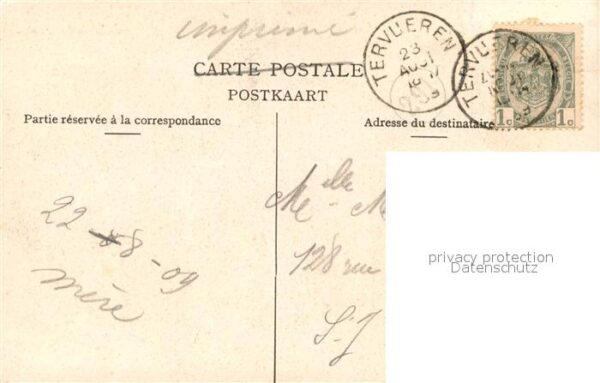 imprimé
CARTE POSTALE
POSTKAART
TERVUEREN
23
AOUT
TERVUEREN
1c 1c
Partie réservée à la correspondance
Adresse du destinataire
22 - 8 - 09
mère
Melle M
128 rue
S. J
privacy protection
Datenschutz